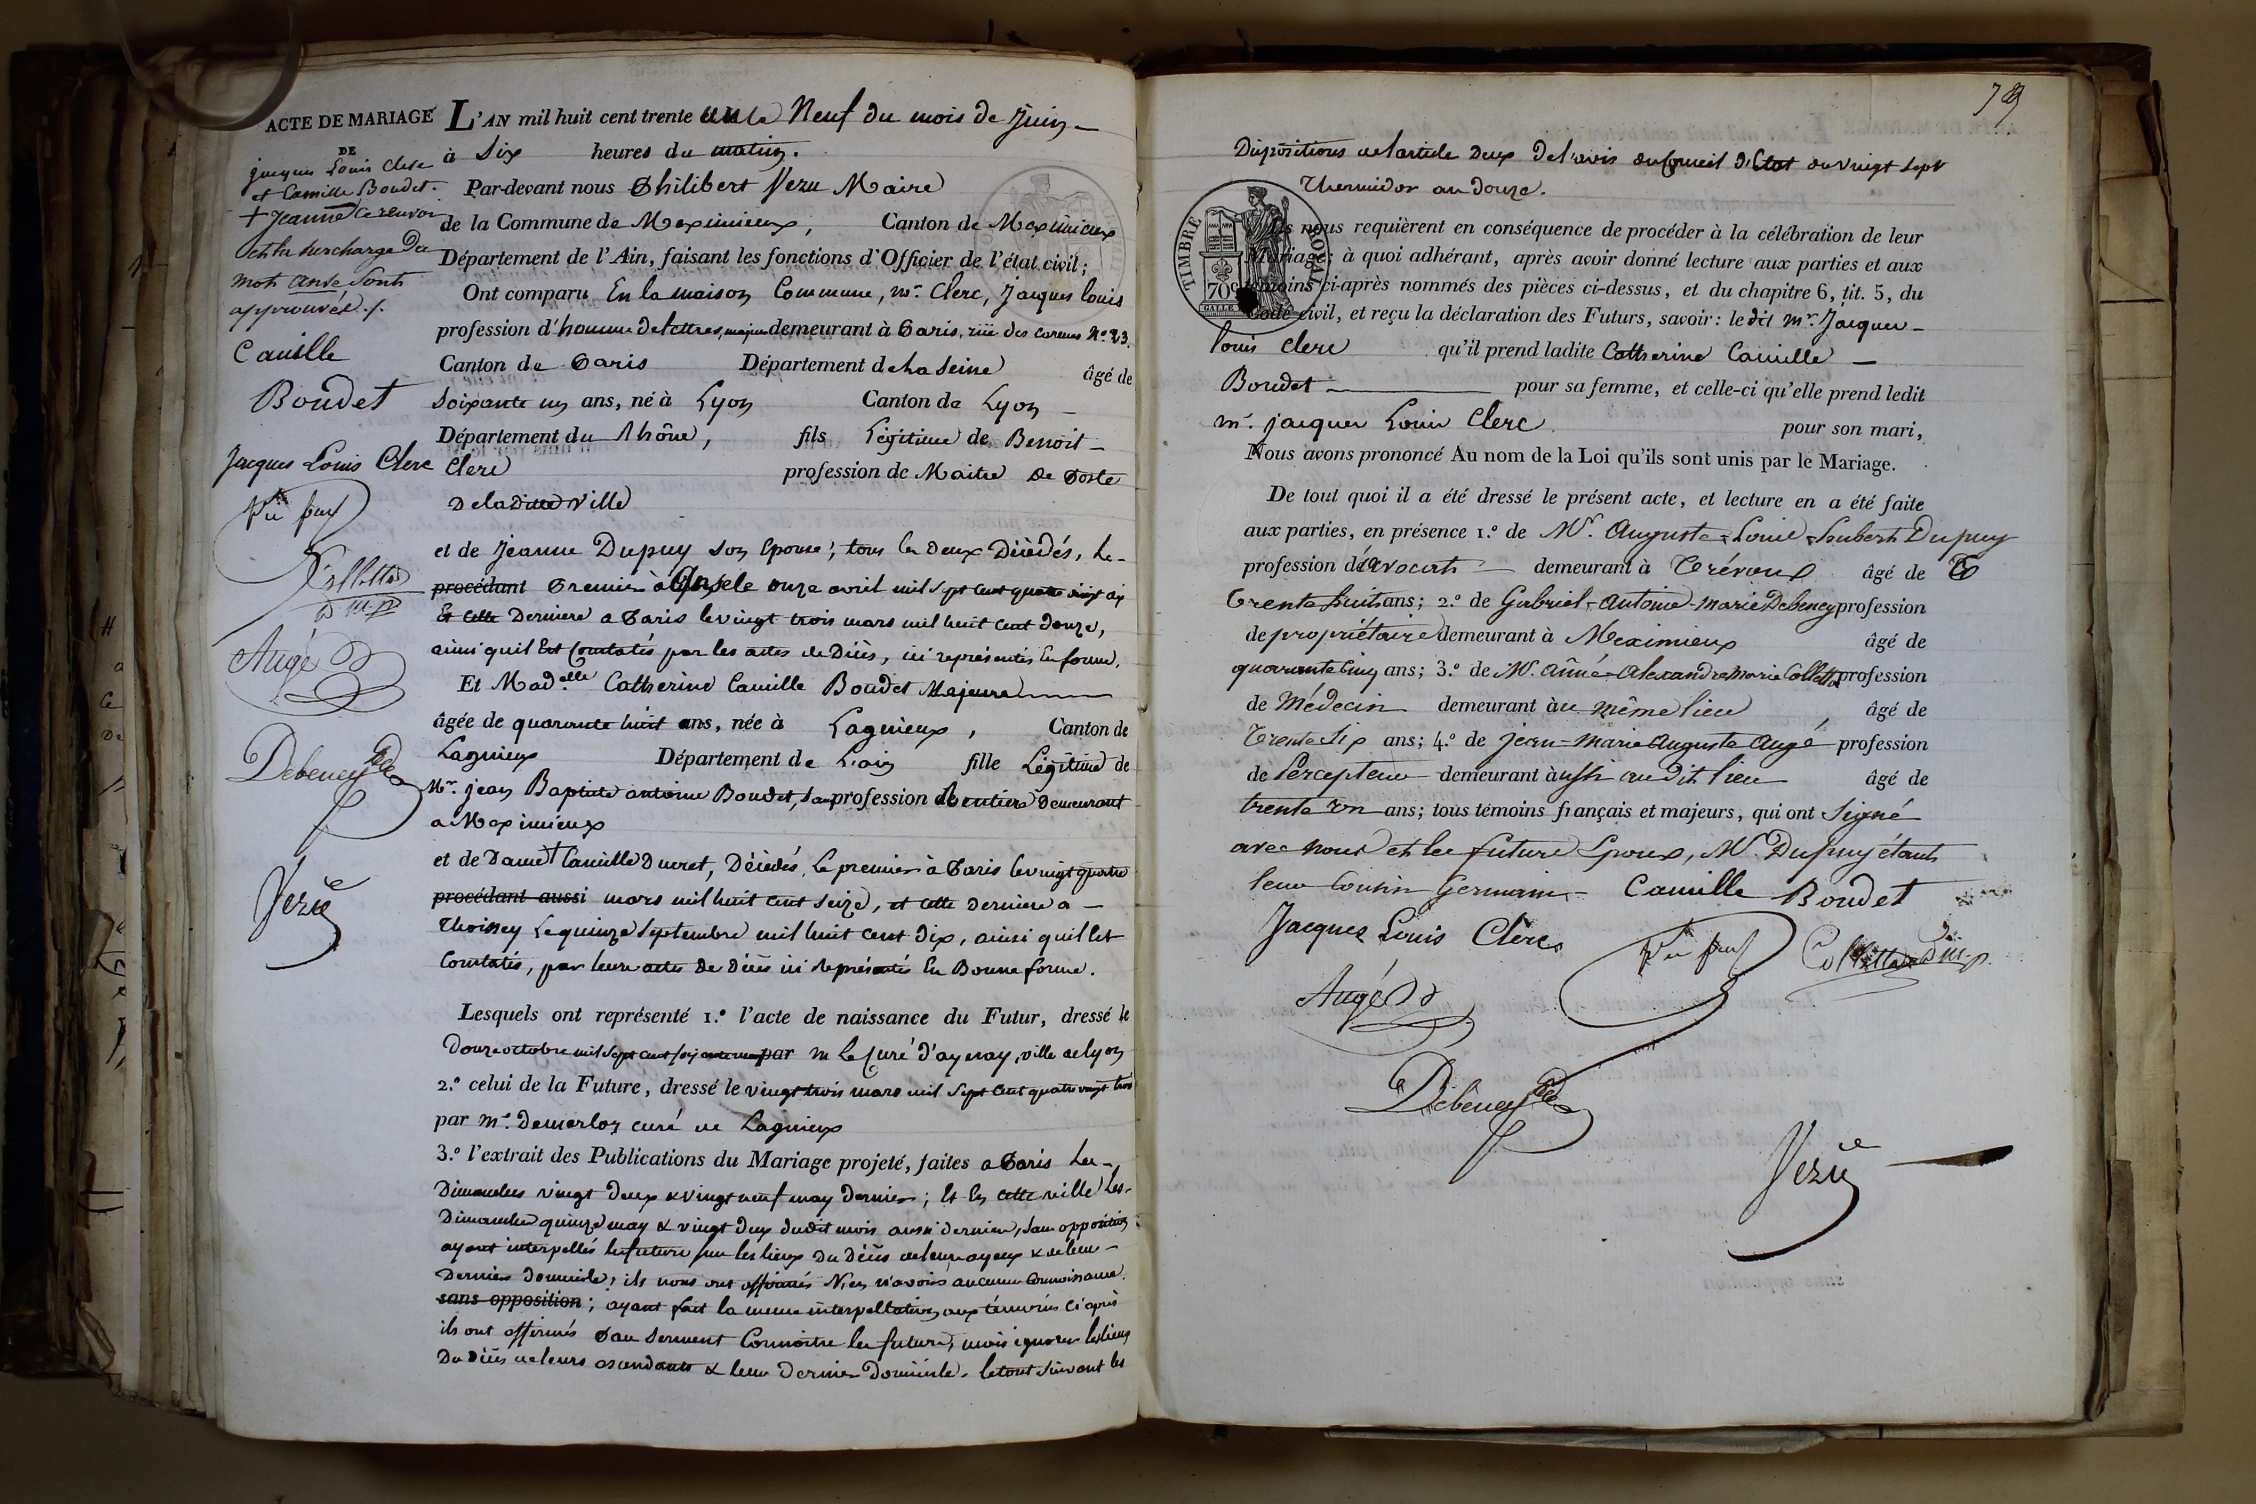 ACTE DE MARIAGE
DE
jacques Louis Clerc
et Camille Boudet.
+ Jeanne ce renvoi
et la surcharge du
mot anse sont
approuvés ./.
Camille
Boudet
Jacques Louis Clerc
Dupuy
Collettad
D M. P.
Augé
Debeney
Vezu
L'AN mil huit cent trente un le Neuf du mois de Juin
à Six heures du matin.
Par-devant nous Philibert Vezu Maire
de la Commune de Meximieux, Canton de Meximieux
Département de l'Ain, faisant les fonctions d'Officier de l'état civil;
Ont comparu En la maison Commune, Mr. Clerc, Jacques Louis
profession d'homme de lettres, majeur demeurant à Paris, rue des Carmes No. 23.
Canton de Paris Département de la Seine âgé de
Soixante un ans, né à Lyon Canton de Lyon
Département du Rhône, fils Légitime de Benoit
Clerc profession de Maitre de Poste
de la ditte ville
et de Jeanne Dupuy son Epouse, tous les deux Décédés, le
procédant Premier à Anse le onze avril mil sept cent quatre vingt dix
Et cette Derniere a Paris le vingt trois mars mil huit cent douze,
ainsi qu'il Est Constatés par les actes de Décès, ici représentés En forme.
Et Mad.elle Catherine Camille Boudet Majeure
âgée de quarante huit ans, née à Lagnieux, Canton de
Lagnieux Département de L'ain fille Légitime de
Mr. jean Baptiste antoine Boudet, sans profession Rentiere Demeurant
a Meximieux
et de Dame + Camille Ducret, Décédés, Le premier à Paris le vingt quatre
procédant aussi mars mil huit cent seize, et cette derniere a
Thoissey Le quinze Septembre mil huit cent dix, ainsi qu'il est
Constatés, par leurs actes de Décès ici représentés En Bonne forme.
Lesquels ont représenté 1.º l'acte de naissance du Futur, dressé le
douze octobre mil sept cent soixante neuf par M le Curé d'aynay, ville de Lyon
2.º celui de la Future, dressé le vingt trois mars mil sept cent quatre vingt trois
par Mr. Demerloz curé de Lagnieux
3.º l'extrait des Publications du Mariage projeté, faites a Paris Les
Dimanches vingt deux & vingt neuf may dernier; Et En cette ville Les
Dimanches quinze may & vingt deux dudit mois aussi dernier, sans opposition
ayant interpellés les futurs sur les lieux du Décès de leurs ayeux & de leur
Dernier domicile, ils nous ont affirmés N'en n'avoir aucune Connoissance.
sans opposition; ayant fait la meme interpellation aux témoins ci après
ils ont affirmés Par Serment Connoitre les futurs, mais ignorer les lieux
Du Décès de leurs ascendants & leur Dernier Domicile. le tout suivant les
79
Dispositions de l'article Deux de l'avis du Conseil d'Etat du vingt sept
Thermidor an douze.
TIMBRE ROYAL
70c
Ils nous requièrent en conséquence de procéder à la célébration de leur
Mariage; à quoi adhérant, après avoir donné lecture aux parties et aux
témoins ci-après nommés des pièces ci-dessus, et du chapitre 6, tit. 5, du
Code civil, et reçu la déclaration des Futurs, savoir: le dit Mr. Jacques
Louis Clerc qu'il prend ladite Catherine Camille
Boudet pour sa femme, et celle-ci qu'elle prend ledit
Mr. jacques Louis Clerc pour son mari,
Nous avons prononcé Au nom de la Loi qu'ils sont unis par le Mariage.
De tout quoi il a été dressé le présent acte, et lecture en a été faite
aux parties, en présence 1.º de Mr. Auguste-Louis-Hubert Dupuy
profession d'avocat demeurant à Trévoux âgé de
trente huit ans; 2.º de Gabriel-Antoine-Marie Debeney profession
de propriétaire demeurant à Meximieux âgé de
quarante cinq ans; 3.º de Mr. Aimé-Alexandre Marie Collettad profession
de Médecin demeurant au même lieu âgé de
trente six ans; 4.º de jean-Marie Auguste Augé profession
de Percepteur demeurant aussi audit lieu âgé de
trente un ans; tous témoins français et majeurs, qui ont signé
avec nous et les futurs Epoux, Mr. Dupuy étant
leur Cousin Germain. Camille Boudet
Jacques Louis Clerc Dupuy Collettad D.M.P.
Augé
Debeney
Vezu